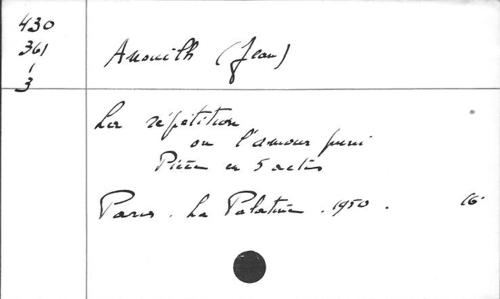 430
361
1
3
Anouilh (Jean)
La répétition
ou l'amour puni
Pièce en 5 actes
Paris. La Palatine. 1950. 16°